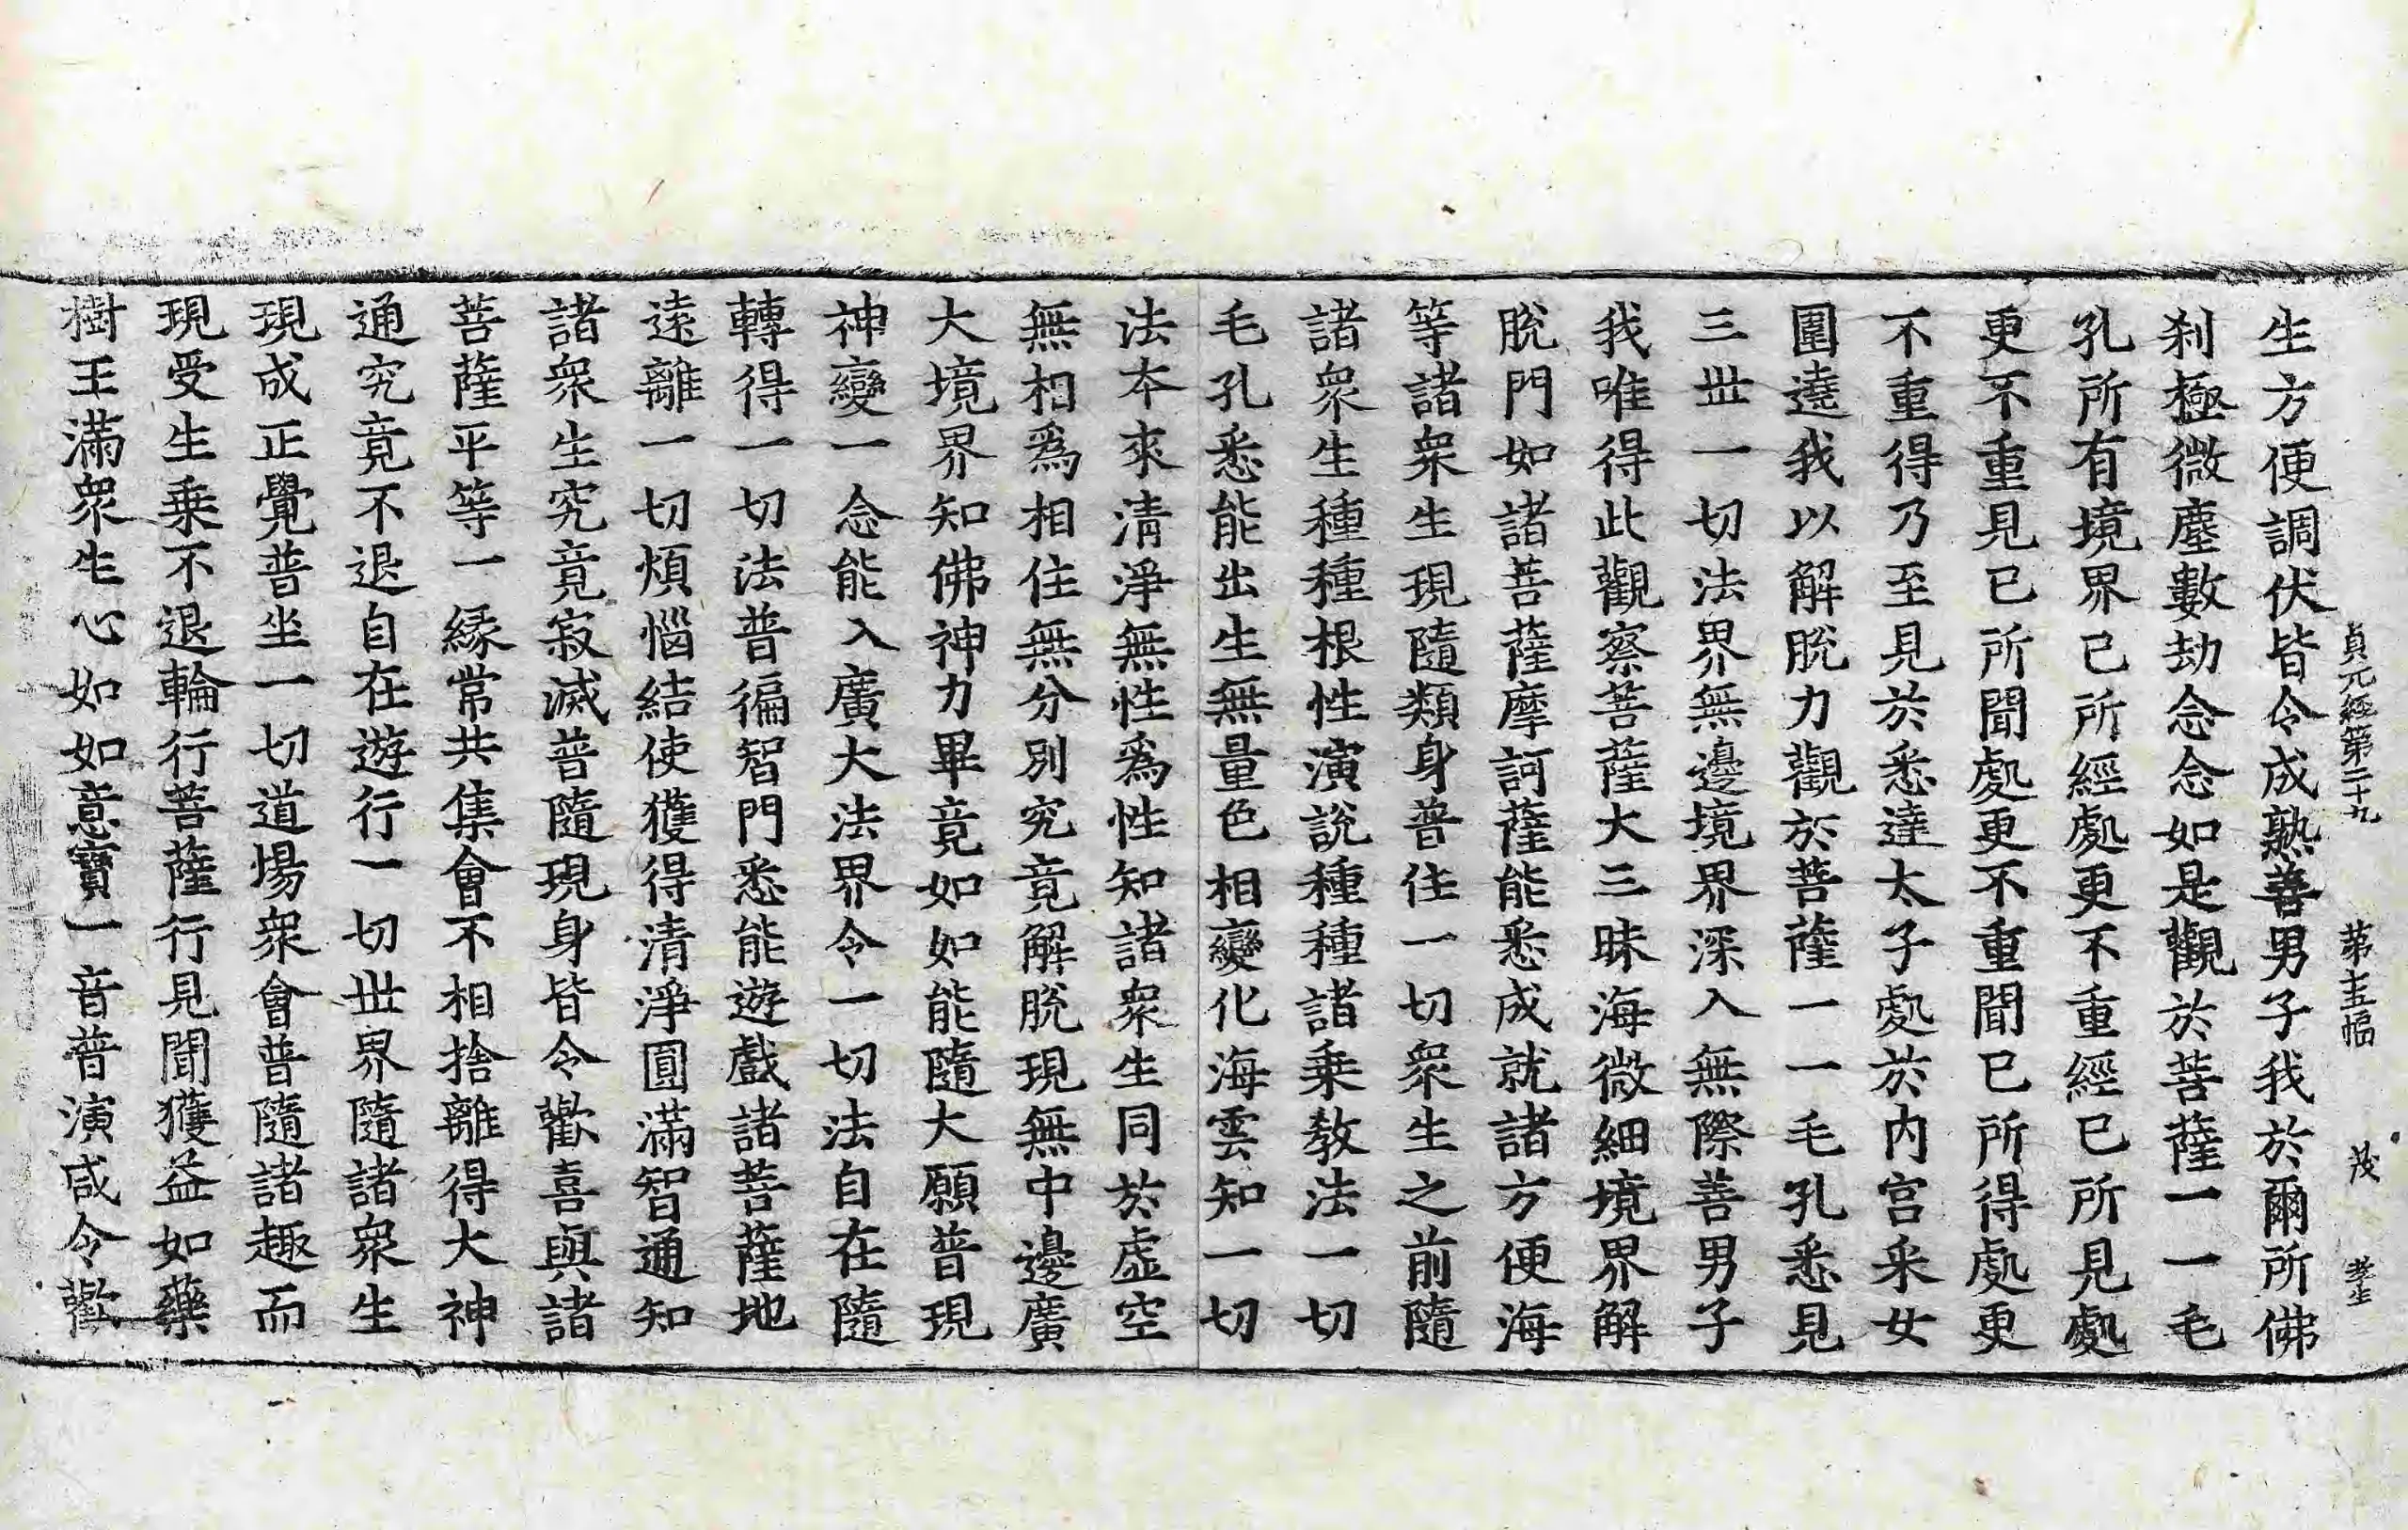 貞元經第二十九 第十五幅 茂
生方便調伏皆令成熟善男子我於爾所佛
刹極微塵數劫念念如是觀於菩薩一一毛
孔所有境界已所經處更不重經已所見處
更不重見已所聞處更不重聞已所得處更
不重得乃至見於悉達太子處於内宫采女
圍遶我以解脫力觀於菩薩一一毛孔悉見
三世一切法界無邊境界深入無際善男子
我唯得此觀察菩薩大三昧海微細境界解
脫門如諸菩薩摩訶薩能悉成就諸方便海
等諸衆生現隨類身普住一切衆生之前隨
諸衆生種種根性演說種種諸乗教法一切
毛孔悉能出生無量色相變化海雲知一切
法本來清淨無性爲性知諸衆生同於虛空
無相爲相住無分別究竟解脫現無中邊廣
大境界知佛神力畢竟如如能隨大願普現
神變一念能入廣大法界令一切法自在隨
轉得一切法普徧智門悉能遊戲諸菩薩地
遠離一切煩惱結使獲得清淨圓滿智通知
諸衆生究竟寂滅普隨現身皆令歡喜與諸
菩薩平等一緣常共集會不相捨離得大神
通究竟不退自在遊行一切世界隨諸衆生
現成正覺普坐一切道場衆會普隨諸趣而
現受生乗不退輪行菩薩行見聞獲益如藥
樹王滿衆生心如如意寶一音普演咸令歡